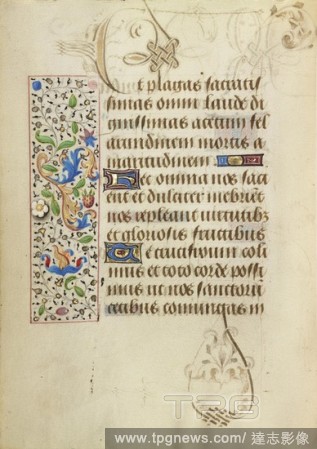 Et plagas sacratis
simas omni laude di
gnissimas acetum fel
arundinem mortis a
maritudinem
Hec omnia nos saci
ent et dulciter
nos repleant virtutibz
et gloriosis fructibus
Te colı
mus et toto corde possi
mus nos sanctoru
cetibus coniungas in
TPG
www.tpgnews.com/ 達志影像